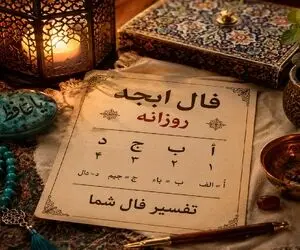 فال ابجد
روزانه
أ ب ج د
۱ ۲ ۳ ۴
أ = الف ب = باء ج = جیم د = دال
تفسیر فال شما